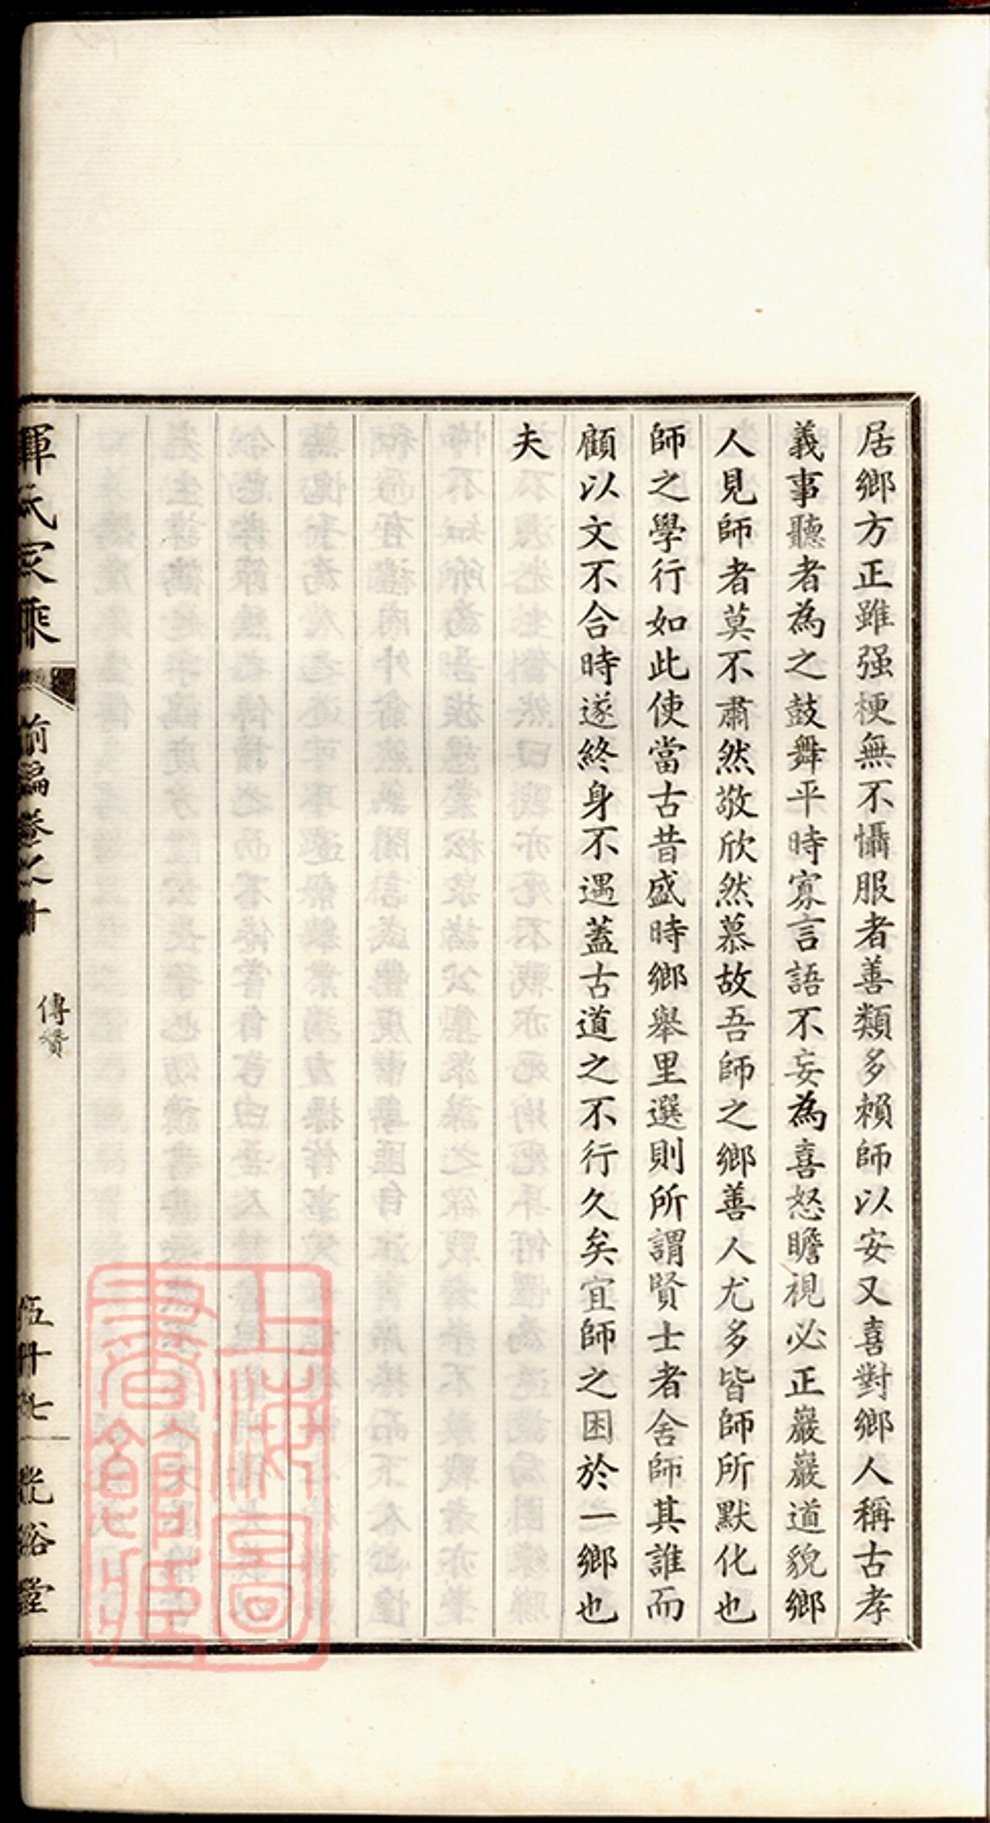 居鄉方正雖强梗無不懾服者善類多賴師以安又喜對鄉人稱古孝
義事聽者為之鼓舞平時寡言語不妄為喜怒瞻視必正巖巖道貌鄉
人見師者莫不肅然敬欣然慕故吾師之鄉善人尤多皆師所默化也
師之學行如此使當古昔盛時鄉舉里選則所謂賢士者舍師其誰而
顧以文不合時遂終身不遇蓋古道之不行久矣宜師之困於一鄉也
夫
惲氏家乘
前編卷之十
傳贊
伍十七
光裕堂
上海圖書館藏